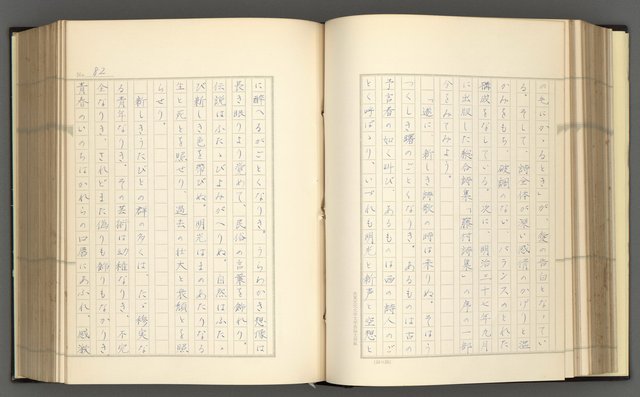 の色にかゝるときしが、愛の告白となってい
る。そして、詩全体が深い感情のかげりと温
かみをもち、破調のない、バランスのとれた
構成をなしている。次に、明治三十七年九月
に出版した総合詩集『藤村詩集』の序の一部
分をみてみよう。
「遂に、新しき詩歌の時は来りぬ。そはうつ
くしき曙のごとくなりき。あるものは古の
予言者の如く叫び、あるものは西の詩人のご
とく呼ばゝり、いづれも明光と新声と空想と
No. 82
に酔へるがごとくなりき。うらわかき想像は
長き眠りより覚めて、民俗の言葉を飾れり。
伝説はふたゝびよみがへりぬ。自然はふたゝ
び新しき色を帯びぬ。明光はまのあたりなる
生と死とを照せり、過去の壮大と衰頽とを照
らせり。
新しきうたびとの群の多くは、たゞ穆実な
る青年なりき。その芸術は幼稚なりき、不完
全なりき、されどまた偽りも飾りもなかりき
青春のいのちはかれらの口唇にあふれ、感激